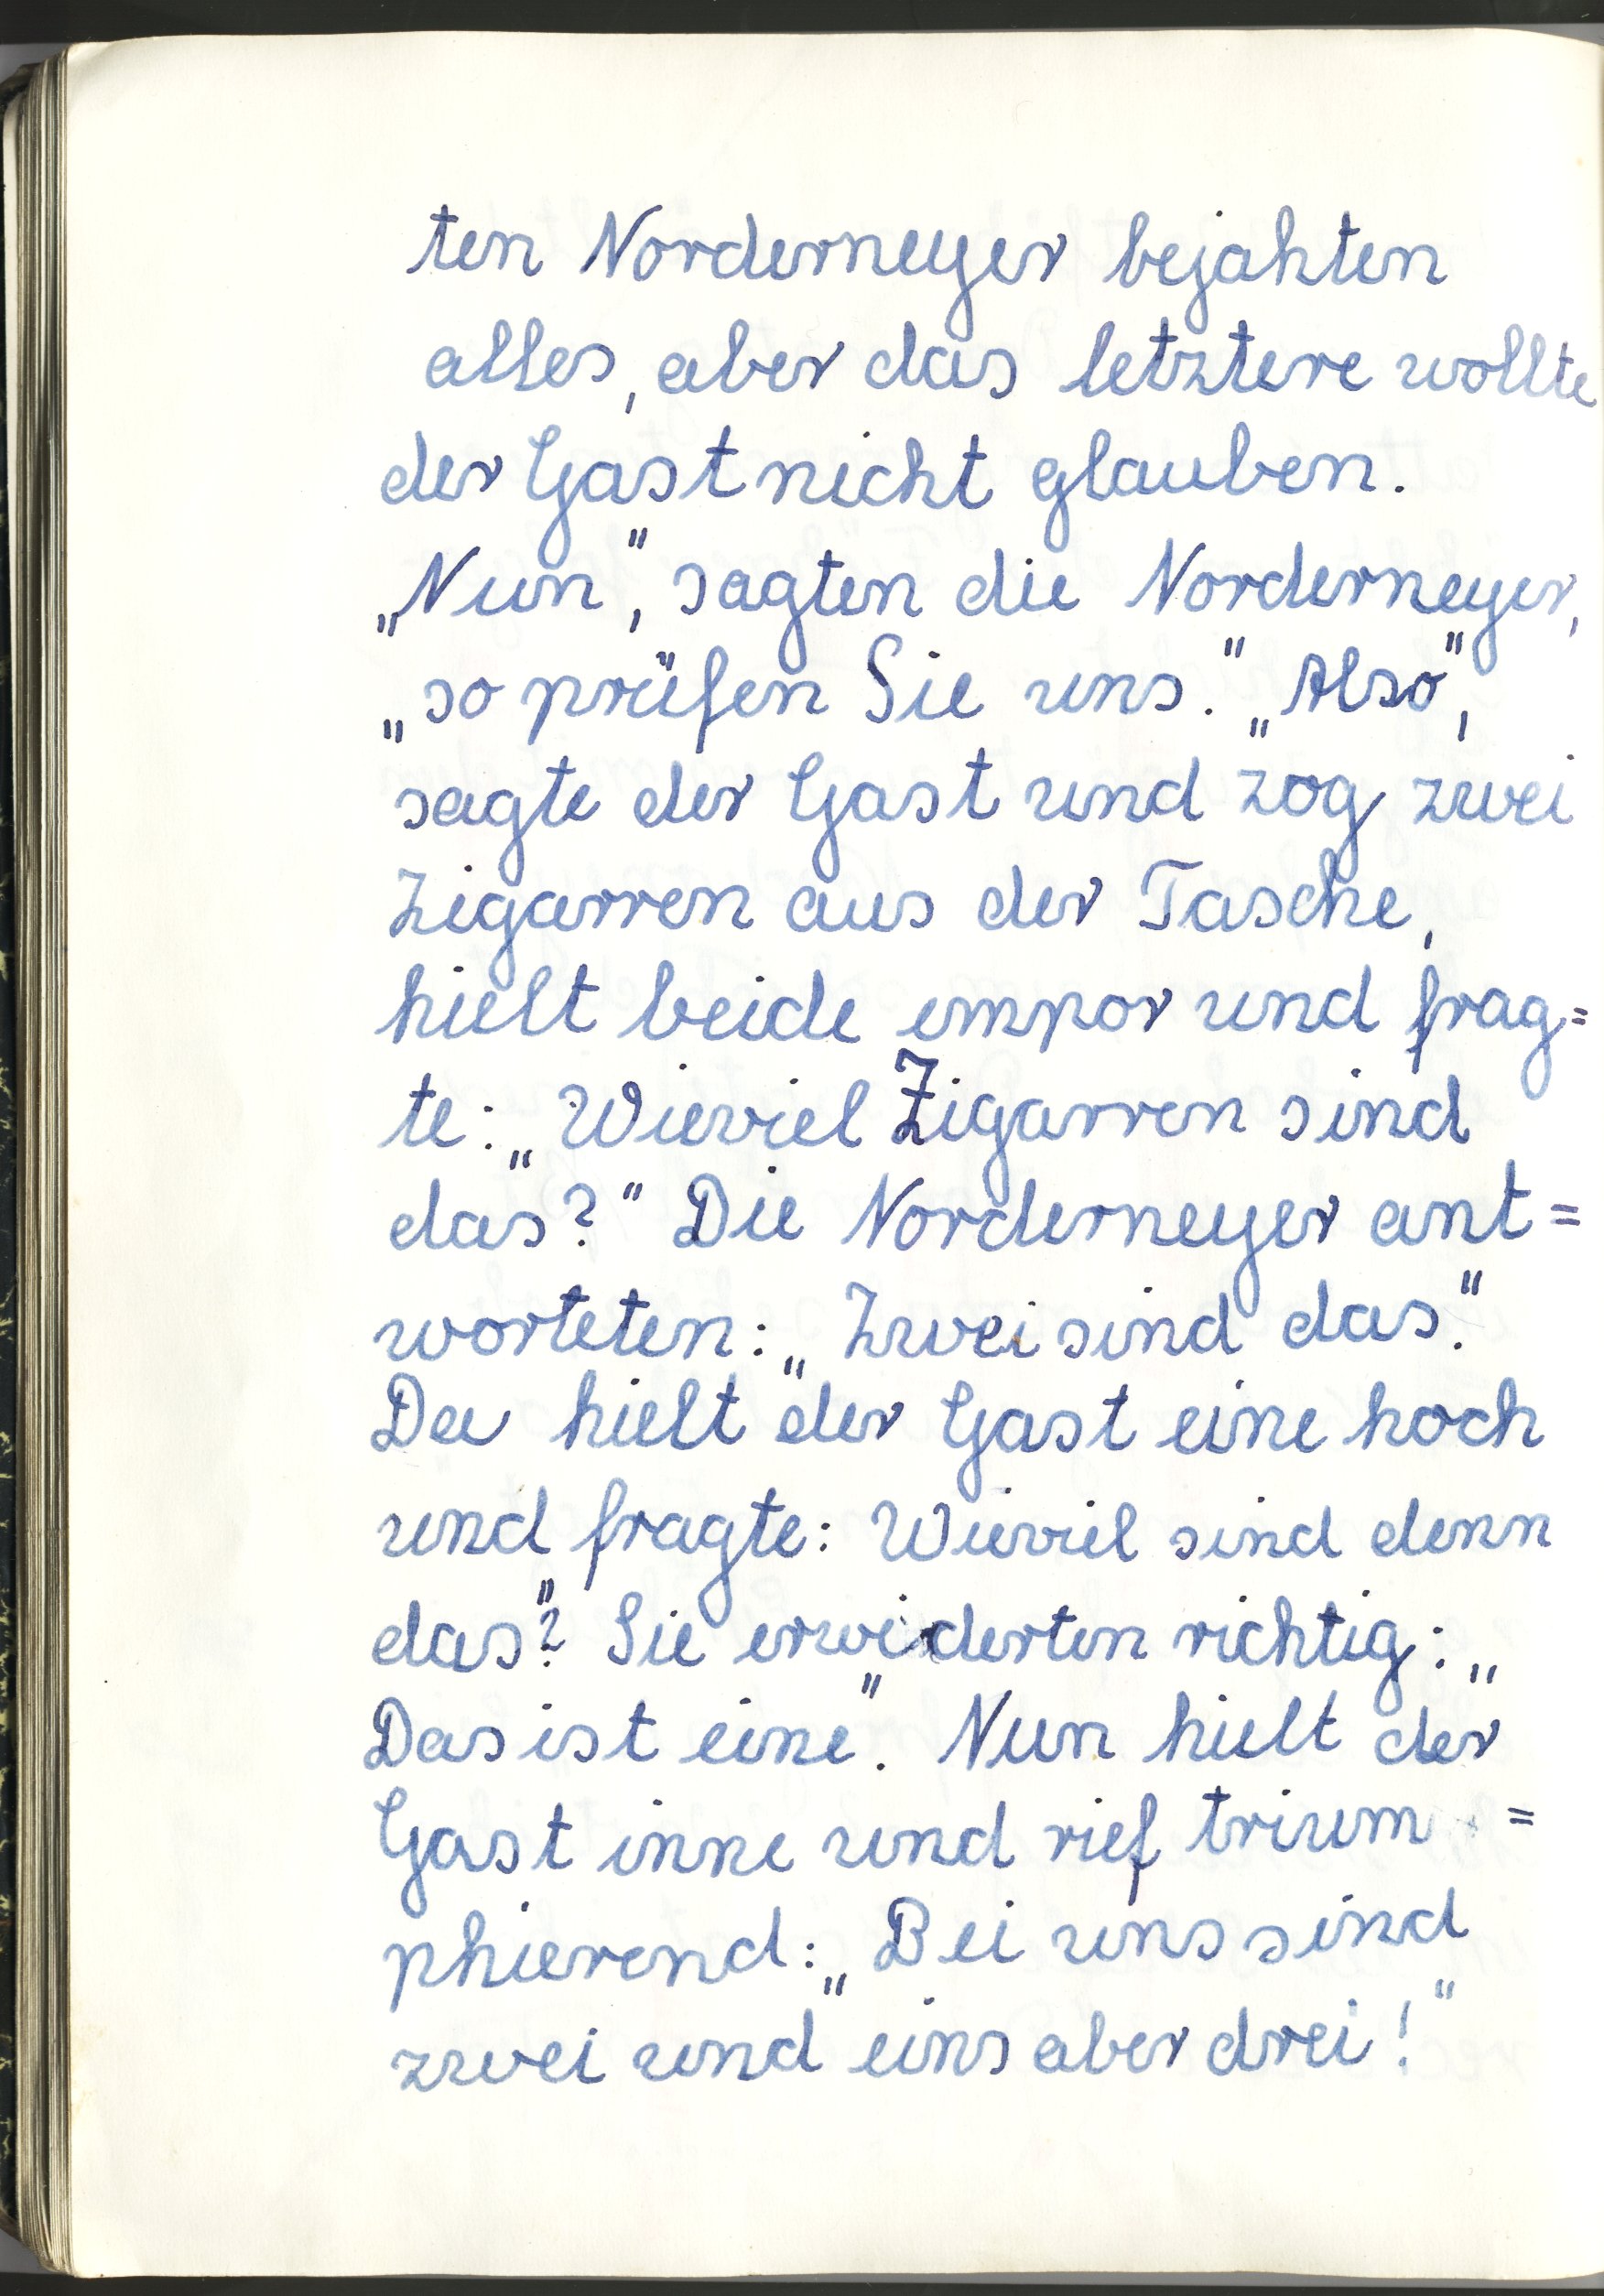 ten Norderneyer bejahten
alles, aber das letztere wollte
der Gast nicht glauben.
„Nun“, sagten die Norderneyer,
„so prüfen Sie uns.“ „Also“,
sagte der Gast und zog zwei
Zigarren aus der Tasche,
hielt beide empor und frag=
te: „Wieviel Zigarren sind
das?“ Die Norderneyer ant=
worteten: „Zwei sind das.“
Da hielt der Gast eine hoch
und fragte: Wieviel sind denn
das“? Sie erwiderten richtig: „
Das ist eine“. Nun hielt der
Gast inne und rief trium =
phierend: „Bei uns sind
zwei und eins aber drei!“